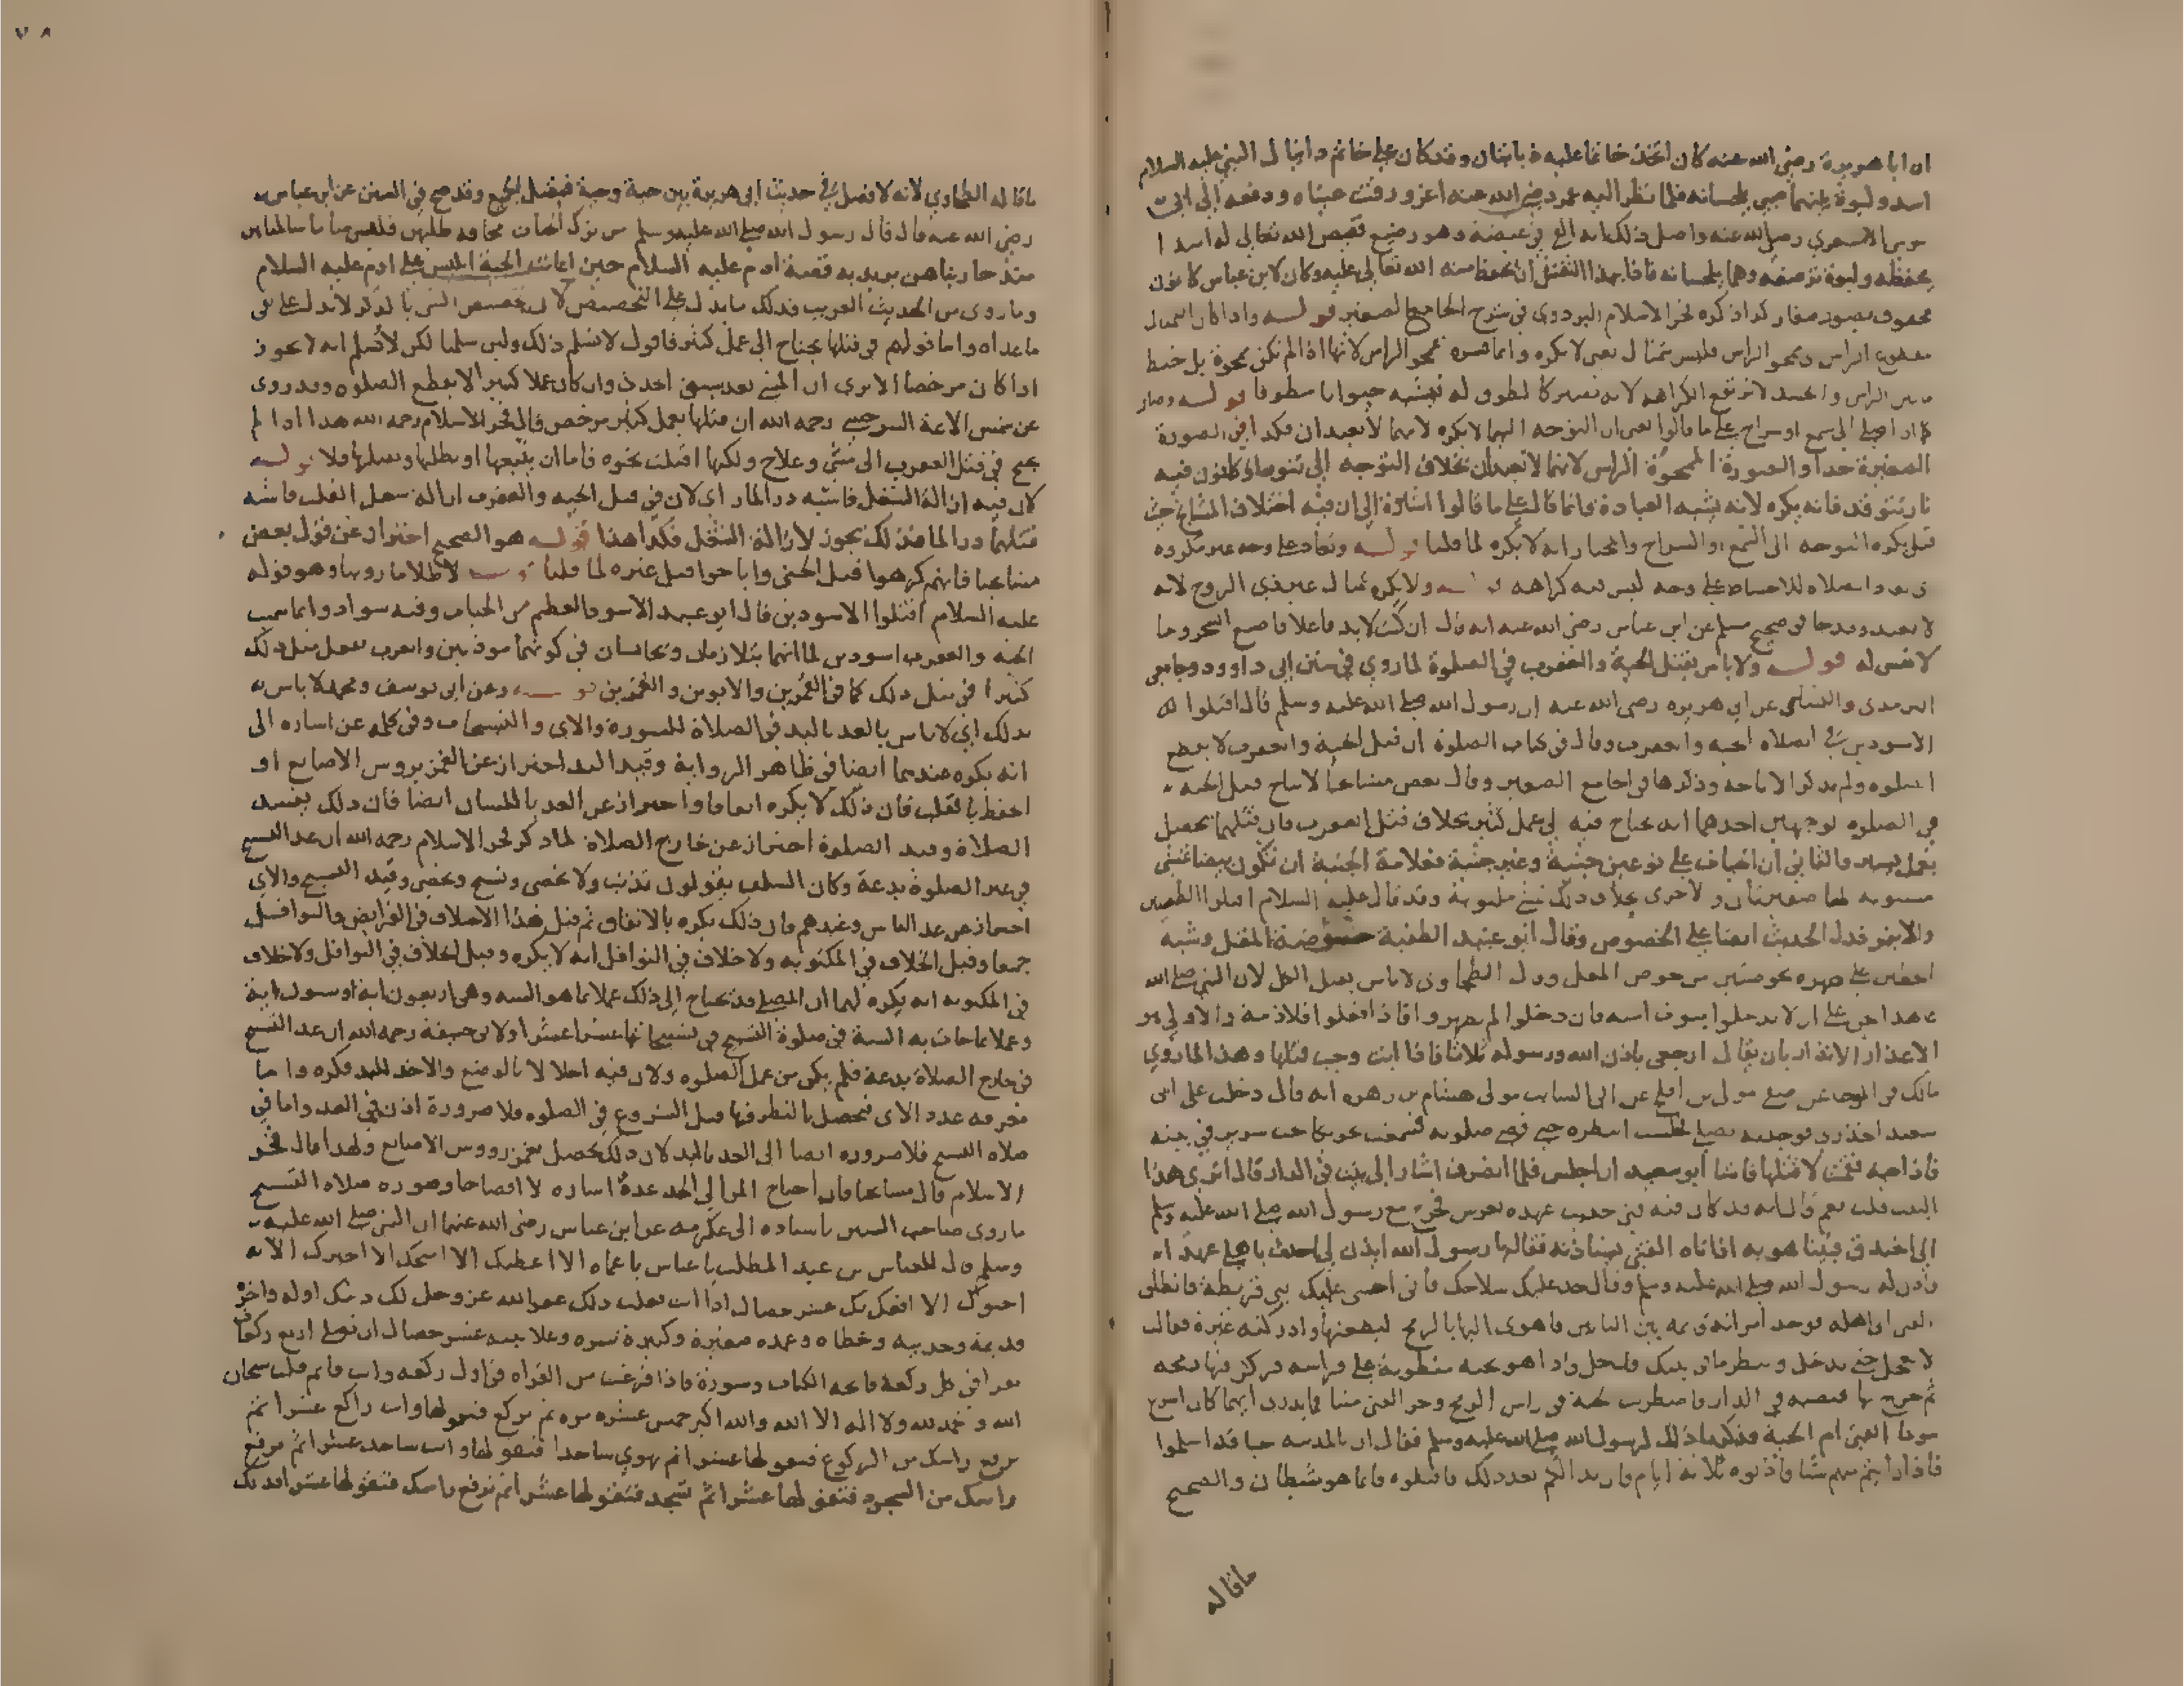 ان ابا هريرة رضي الله عنه كان اتخذ خاتما عليه ذبابتان وقد كان على خاتم دانيال النبي عليه السلام
اسد ولبوة بينهما صبي يلحسانه فلما نظر اليه عمر رضي الله عنه اغرورقت عيناه ودفعه الى ابي
موسى الاشعري رضي الله عنه واصل ذلك انه القي في غيضة وهو رضيع فقيض الله تعالى له اسدا
يحفظه ولبوة ترضعه وهما يلحسانه فاذا بهذا التمثل ان يحفظ منه الله تعالى عليه وكان لابن عباس كانون
محفوف بصور صغار كذا ذكره فخر الاسلام البزدوي في شرح الجامع الصغير قوله واذا كان التمثال
مقطوع الراس وممحو الراس فليس بتمثال يعني لا يكره وانما فسره بممحو الراس لانها اذا لم تكن ممحوة بل خيط
بين الراس والجسد لا ترتفع الكراهة لانه يصير كالمطوق له فيشبه حيوانا مطوقا قوله وصار
كما اذا صلى الى شمع او سراج على ما قالوا يعني ان التوجه اليهما لا يكره لانهما لا يعبدان فكذا في الصورة
الصغيرة جدا والصورة الممحوة الراس لانهما لا تعبدان بخلاف التوجه الى تنور او كانون فيه
نار يتوقد فانه يكره لانه يشبه العبادة وانما قال على ما قالوا اشارة الى ان فيه اختلاف المشايخ حيث
قيل يكره التوجه الى الشمع والسراج والمختار انه لا يكره لما قلنا قوله وتعاد على وجه غير مكروه
اي يعاد الصلاة للاحتياط على وجه ليس فيه كراهة قوله ولا يكره تمثال غير ذي الروح لانه
لا يعبد وقد جا في صحيح مسلم عن ابن عباس رضي الله عنه انه قال ان كنت لا بد فاعلا فاصنع الشجر وما
لا نفس له قوله ولا باس بقتل الحية والعقرب في الصلوة لما روي في سنن ابي داوود وجامع
الترمذي والنسائي عن ابي هريرة رضي الله عنه ان رسول الله صلى الله عليه وسلم قال اقتلوا
الاسودين في الصلاة الحية والعقرب وقال في كتاب الصلوة ان قتل الحية والعقرب لا يقطع
الصلوة ولم يذكر الاباحة وذكرها في الجامع الصغير وقال بعض مشايخنا لا يباح قتل الحية
في الصلوة لوجهين احدهما انه يحتاج فيه الى عمل كثير بخلاف قتل العقرب فان قتلها يحصل
بفعل يسير والثاني ان الحيات على نوعين جنية وغير جنية فعلامة الجنية ان تكون بيضا تمشي
مستوية لها ضفيرتان والاخرى بخلاف ذلك تمشي ملتوية وقد قال عليه السلام اقتلوا الطفيتين
والابتر فدل الحديث ايضا على الخصوص وقال ابو عبيد الطفية خوصة المقل وشبه
الخطين على ظهره بخوصتين من خوص المقل وقال الطحاوي لا باس بقتل الكل لان النبي صلى الله
عاهد الجن على ان لا يدخلوا بيوت امته فان دخلوا لم يظهروا فاذا فعلوا فلا ذمة والاولى هو
الاعذار الانذار بان يقال ارجعي باذن الله ورسوله ثلاثا فاذا ابت وجب قتلها وهذا لما روي
مالك في الموطا عن صيفي مولى بن افلح عن ابي السايب مولى هشام بن زهرة انه قال دخلت على ابي
سعيد الخدري فوجدته يصلي فجلست انتظره حتى قضى صلوته فسمعت تحريكا تحت سرير في بيته
فاذا حية فقمت لاقتلها فاشار ابو سعيد ان اجلس فلما انصرف اشار الى بيت في الدار قال اترى هذا
البيت قلت نعم قال انه قد كان فيه فتى حديث عهد بعرس فخرج مع رسول الله صلى الله عليه وسلم
الى الخندق فبينا هو به اذ اتاه الفتى يستاذنه فقال يا رسول الله ايذن لي احدث باهلي عهدا
واذن له رسول الله صلى الله عليه وسلم وقال خذ عليك سلاحك فاني اخشى عليك بني قريظة فانطلق
الفتى الى اهله فوجد امراته قايمة بين البابين فاهوى اليها بالرمح ليطعنها وادركته غيرة فقالت
لا تعجل حتى تدخل وتنظر ما في بيتك فدخل واذا هو بحية منطوية على فراشه فركز فيها رمحه
ثم خرج بها فنصبه في الدار فاضطربت الحية في راس الرمح وخر الفتى ميتا فما يدرى ايهما كان اسرع
موتا الفتى ام الحية فذكر ذلك لرسول الله صلى الله عليه وسلم فقال ان بالمدينة جنا قد اسلموا
فاذا رايتم منهم شيا فاذنوه ثلاثة ايام فان بدا لكم بعد ذلك فاقتلوه فانما هو شيطان والصحيح
ماقاله
٧٨
ماقاله الطحاوي لانه لا فصل في حديث ابي هريرة بين حية وحية فيقتل الجميع وقد صح في السنن عن ابن عباس
رضي الله عنه قال قال رسول الله صلى الله عليه وسلم من ترك الحيات مخافة طلبهن فليس منا ما سالمناهن
منذ حاربناهن يريد به قصة ادم عليه السلام حين اعانت الحية ابليس على ادم عليه السلام
وما روي من الحديث الغريب فذلك ما يدل على التخصيص لان تخصيص الشي بالذكر لا يدل على نفي
ما عداه واما قولهم في قتلها يحتاج الى عمل كثير فاقول لا نسلم ذلك ولين سلمنا لكن لا نسلم انه لا يجوز
اذا كان مرخصا الا يرى ان المشي بعد سبق الحدث وان كان عملا كثيرا لا يقطع الصلوة وقد روى
عن شمس الايمة السرخسي رحمه الله ان قتلها بعمل كثير مرخص قال فخر الاسلام رحمه الله هذا اذا لم
يحتج في قتل العقرب الى مشي وعلاج ولكنها اقبلت نحوه فاما ان يتبعها او يطلبها ويقتلها فلا قوله
لان فيه ازالة الشغل فاشبه درا المار اي لان في قتل الحية والعقرب ازالة شغل القلب فاشبه
قتلهما درا المار فذلك يجوز لازالة الشغل فكذا هذا قوله هو الصحيح احتراز عن قول بعض
مشايخنا فانهم كرهوا قتل الجني واباحوا قتل غيره لما قلنا قوله لاطلاق ما روينا وهو قوله
عليه السلام اقتلوا الاسودين قال ابو عبيد الاسود العظيم من الحيات وفيه سواد وانما سميت
الحية والعقرب اسودين لما انهما يتلازمان ويتجانسان في كونهما موذيين والعرب تفعل مثل ذلك
كثيرا في مثل ذلك كما في العمرين والابوين والقمرين قوله وعن ابي يوسف ومحمد لا باس به
بذلك اي لا باس بالعد باليد في الصلاة للسورة والاي والتسبيحات وفي كلمة عن اشارة الى
انه يكره عندهما ايضا في ظاهر الرواية وقيد اليد احتراز عن الغمز بروس الاصابع او
الحفظ بالقلب فان ذلك لا يكره اتفاقا واحتراز عن العد باللسان ايضا فان ذلك يفسد
الصلاة وقيد الصلوة احتراز عن خارج الصلاة لما ذكر فخر الاسلام رحمه الله ان عد التسبيح
في غير الصلوة بدعة وكان السلف يقولون نذنب ولا نحصي ونسبح ونحصي وقيد التسبيح والاي
احتراز عن عد الناس وغيرهم فان ذلك يكره بالاتفاق ثم قيل هذا الاختلاف في الفرايض والنوافل
جميعا وقيل الخلاف في المكتوبة ولا خلاف في النوافل انه لا يكره وقيل الخلاف في النوافل ولا خلاف
في المكتوبة انه يكره لهما ان المصلي قد يحتاج الى ذلك عملا بما هو السنة وهي اربعون اية او ستون اية
وعملا بما جات به السنة في صلوة التسبيح في تسبيحاتها عشرا عشرا ولابي حنيفة رحمه الله ان عد التسبيح
في خارج الصلاة بدعة فلم يكن من عمل الصلوة ولان فيه اخلالا بالوضع والاخذ لليد فكره واما
معرفة عدد الاي فتحصل بالنظر فيها قبل الشروع في الصلوة فلا ضرورة اذن في العد واما في
صلاة التسبيح فلا ضرورة ايضا الى العد باليد لان ذلك يحصل بغمز رووس الاصابع ولهذا قال فخر
الاسلام قال مشايخنا فان احتاج المرا الى العد عده اشارة لا افصاحا وصورة صلاة التسبيح
ما روى صاحب السنن باسناده الى عكرمة عن ابن عباس رضي الله عنهما ان النبي صلى الله عليه
وسلم قال للعباس بن عبد المطلب يا عباس يا عماه الا اعطيك الا امنحك الا اخبرك الا
احبوك الا افعل بك عشر خصال اذا انت فعلت ذلك غفر الله عز وجل لك ذنبك اوله واخره
قديمه وحديثه وخطاه وعمده صغيره وكبيره سره وعلانيته عشر خصال ان تصلي اربع ركعات
تقرا في كل ركعة فاتحة الكتاب وسورة فاذا فرغت من القراة في اول ركعة وانت قايم قلت سبحان
الله والحمد لله ولا اله الا الله والله اكبر خمس عشرة مرة ثم تركع فتقولها وانت راكع عشرا ثم
ترفع راسك من الركوع فتقولها عشرا ثم تهوي ساجدا فتقولها وانت ساجد عشرا ثم ترفع
راسك من السجود فتقولها عشرا ثم تسجد فتقولها عشرا ثم ترفع راسك فتقولها عشرا فذلك